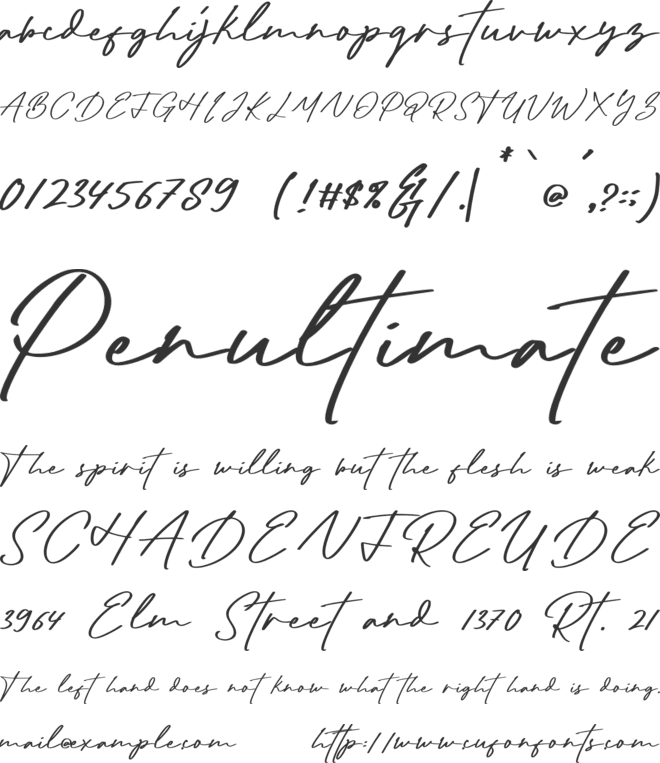 abcdefghijklmnopqrstuvwxyz
ABCDEFGHIJKLMNOPQRSTUVWXYZ
0123456789 (!#$%&/.|*`´@,?:;)
Penultimate
The spirit is willing but the flesh is weak
SCHADENFREUDE
3964 Elm Street and 1370 Rt. 21
The left hand does not know what the right hand is doing.
mail@example.com http://www.cufonfonts.com